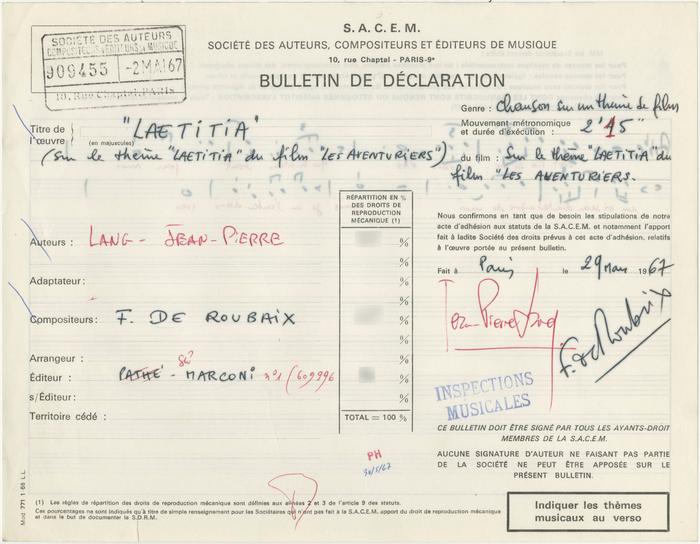 S.A.C.E.M.
SOCIÉTÉ DES AUTEURS, COMPOSITEURS ET ÉDITEURS DE MUSIQUE
10, rue Chaptal - PARIS-9e
BULLETIN DE DÉCLARATION
SOCIÉTÉ DES AUTEURS
COMPOSITEURS & ÉDITEURS DE MUSIQUE
909455 -2 MAI 67
10, Rue Chaptal, PARIS
Genre : chanson sur un thème de film
Mouvement métronomique
et durée d'exécution : 2'15"
Titre de l'œuvre
(en majuscules)
"LAETITIA"
(sur le thème "LAETITIA" du film "LES AVENTURIERS")
du film : Sur le thème "LAETITIA" du
film "LES AVENTURIERS.
RÉPARTITION EN %
DES DROITS DE
REPRODUCTION
MÉCANIQUE (1)
Auteurs : LANG - JEAN-PIERRE %
%
Adaptateur : %
%
Compositeurs : F. DE ROUBAIX %
%
Arrangeur : %
Éditeur : PATHÉ - MARCONI n°1 (609996 %
s/Éditeur : %
Territoire cédé :
TOTAL = 100 %
Nous confirmons en tant que de besoin les stipulations de notre
acte d'adhésion aux statuts de la S.A.C.E.M. et notamment l'apport
fait à ladite Société des droits prévus à cet acte d'adhésion, relatifs
à l'œuvre portée au présent bulletin.
Fait à Paris le 29 mars 1967
Jean-Pierre Lang
F. de Roubaix
INSPECTIONS
MUSICALES
CE BULLETIN DOIT ÊTRE SIGNÉ PAR TOUS LES AYANTS-DROIT
MEMBRES DE LA S.A.C.E.M.
AUCUNE SIGNATURE D'AUTEUR NE FAISANT PAS PARTIE
DE LA SOCIÉTÉ NE PEUT ÊTRE APPOSÉE SUR LE
PRÉSENT BULLETIN.
PH
30/5/67
Indiquer les thèmes
musicaux au verso
(1) Les règles de répartition des droits de reproduction mécanique sont définies aux alinéas 2 et 3 de l'article 9 des statuts.
Ces pourcentages ne sont indiqués qu'à titre de simple renseignement pour les Sociétaires qui n'ont pas fait à la S.A.C.E.M. apport du droit de reproduction mécanique
et dans le but de documenter la S.D.R.M.
Mod 771 1 66 L.L.